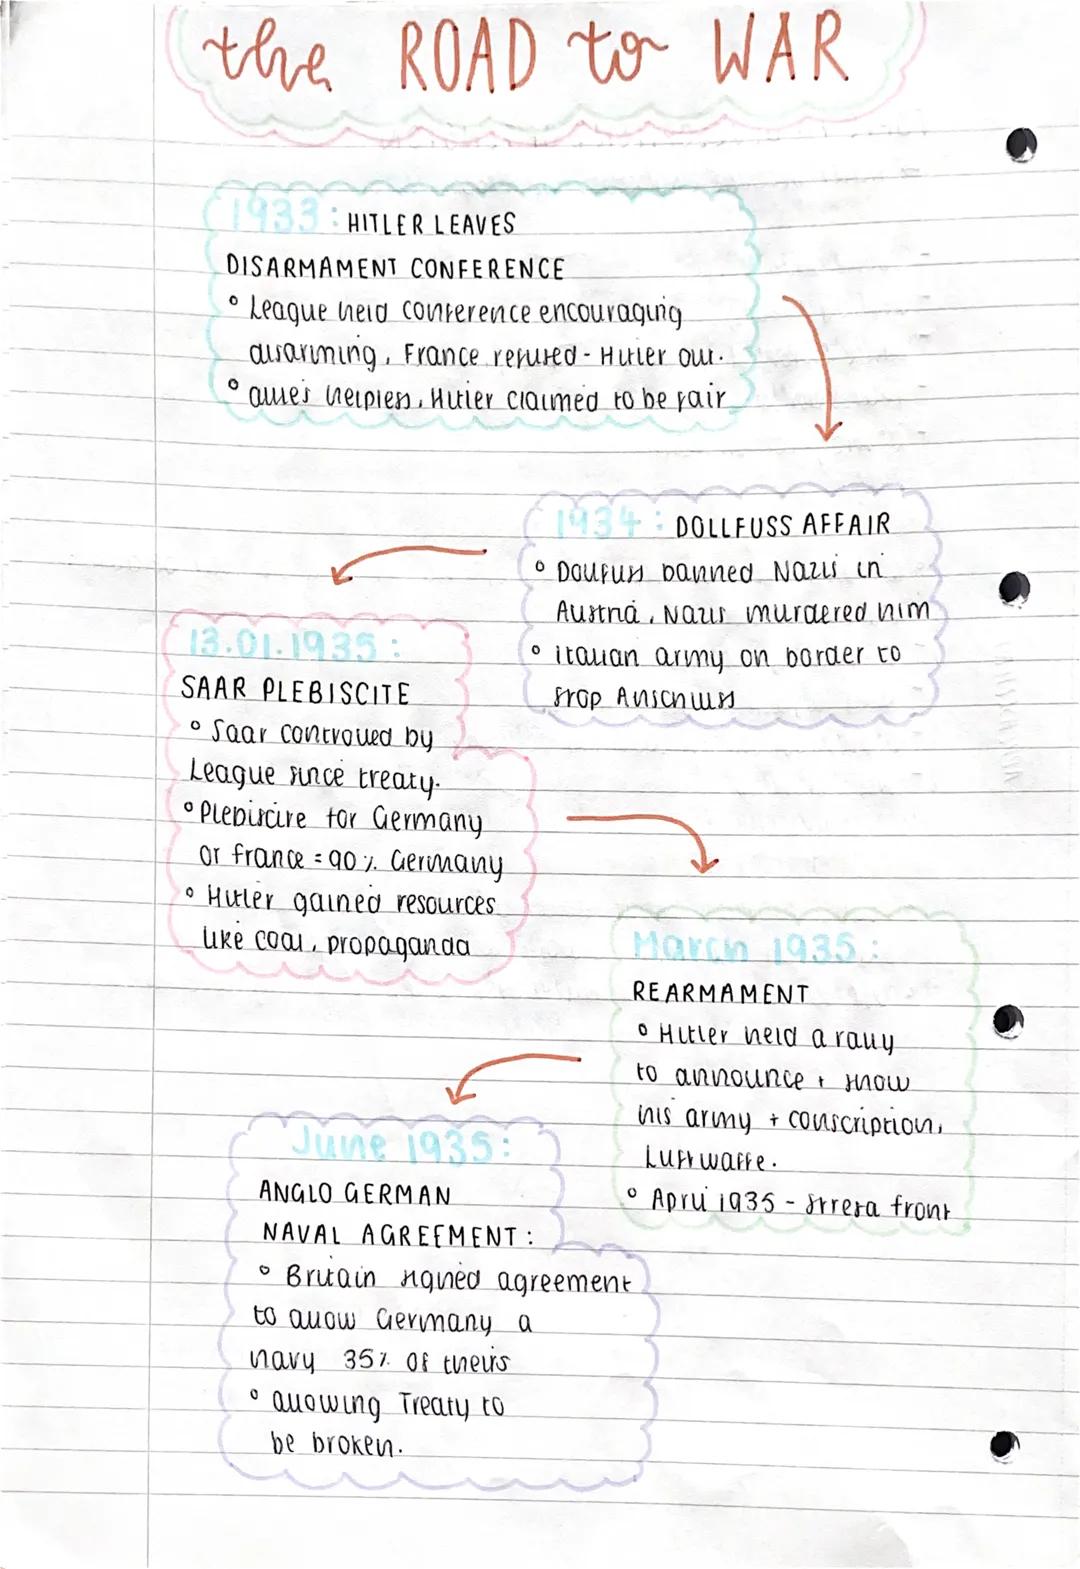 the ROAD to WAR
1933: HITLER LEAVES
DISARMAMENT CONFERENCE
° League held conference encouraging
disarming, France refused - Hitler out.
° allies helpless, Hitler claimed to be fair
1934: DOLLFUSS AFFAIR
° Dollfuss banned Nazis in
Austria, Nazis murdered him
° italian army on border to
stop Anschluss
13.01.1935:
SAAR PLEBISCITE
° Saar controlled by
League since treaty.
° Plebiscite for Germany
or france = 90% Germany
° Hitler gained resources
like coal, propaganda
March 1935:
REARMAMENT
° Hitler held a rally
to announce + show
his army + conscription,
Luftwaffe.
° April 1935 - Stresa front
June 1935:
ANGLO GERMAN
NAVAL AGREEMENT:
° Britain signed agreement
to allow Germany a
navy 35% of theirs
° allowing Treaty to
be broken.